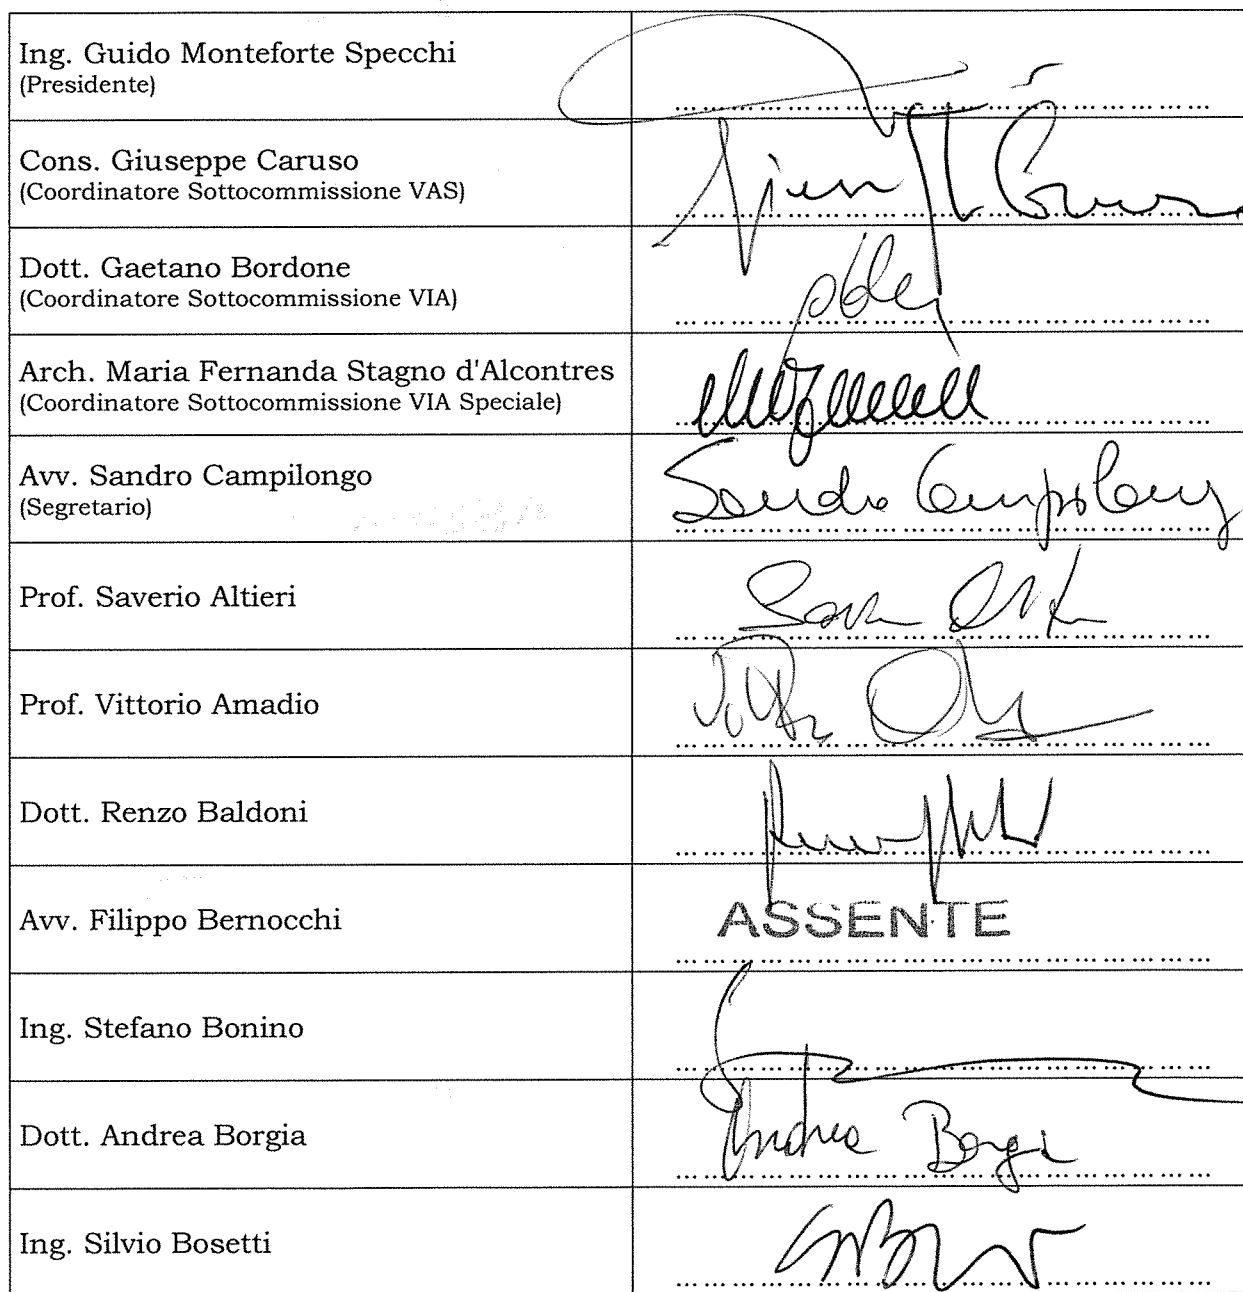 Ing. Guido Monteforte Specchi
(Presidente)
Cons. Giuseppe Caruso
(Coordinatore Sottocommissione VAS)
Dott. Gaetano Bordone
(Coordinatore Sottocommissione VIA)
Arch. Maria Fernanda Stagno d'Alcontres
(Coordinatore Sottocommissione VIA Speciale)
Avv. Sandro Campilongo
(Segretario)
Sandro Campilong
Prof. Saverio Altieri
Prof. Vittorio Amadio
Dott. Renzo Baldoni
Avv. Filippo Bernocchi
ASSENTE
Ing. Stefano Bonino
Dott. Andrea Borgia
Andrea Borgi
Ing. Silvio Bosetti